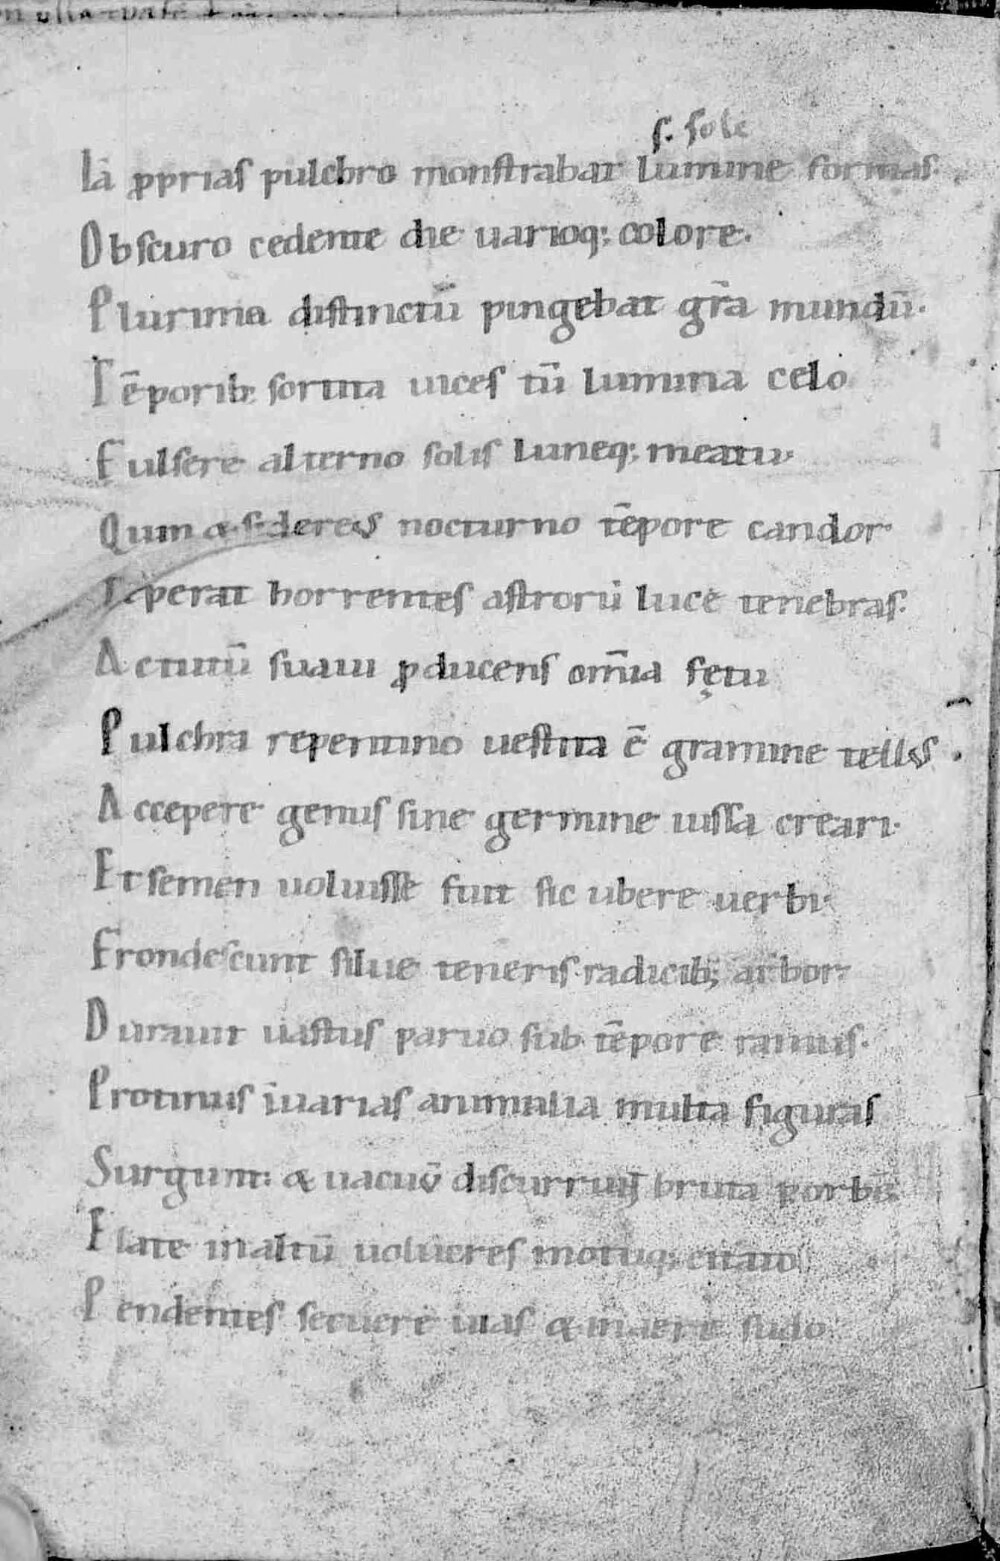 s. sole
Iā ꝓprias pulchro monstrabat lumine formas.
Obscuro cedente die uarioq; colore.
Plurima distinctū pingebat gr̄a mundū.
Tēporib; sortita uices tū lumina celo
Fulsere alterno solis luneq; meatu.
Quin & sidereus nocturno tēpore candor.
Tēperat horrentes astrorū luce tenebras.
Actutū suaui ꝓducens om̄ia fętu
Pulchra repentino uestita ē gramine tellus.
Accepere genus sine germine iussa creari.
Et semen uoluisse fuit sic ubere uerbi.
Frondescunt silue teneris radicib; arbor
Durauit uastus paruo sub tēpore ramis.
Protinus ī uarias animalia multa figuras
Surgunt: & uacuū discurrunt bruta ꝑ orbē.
Elate in altū uolucres motuq; citato
Pendentes secuere uias & in aere sudo